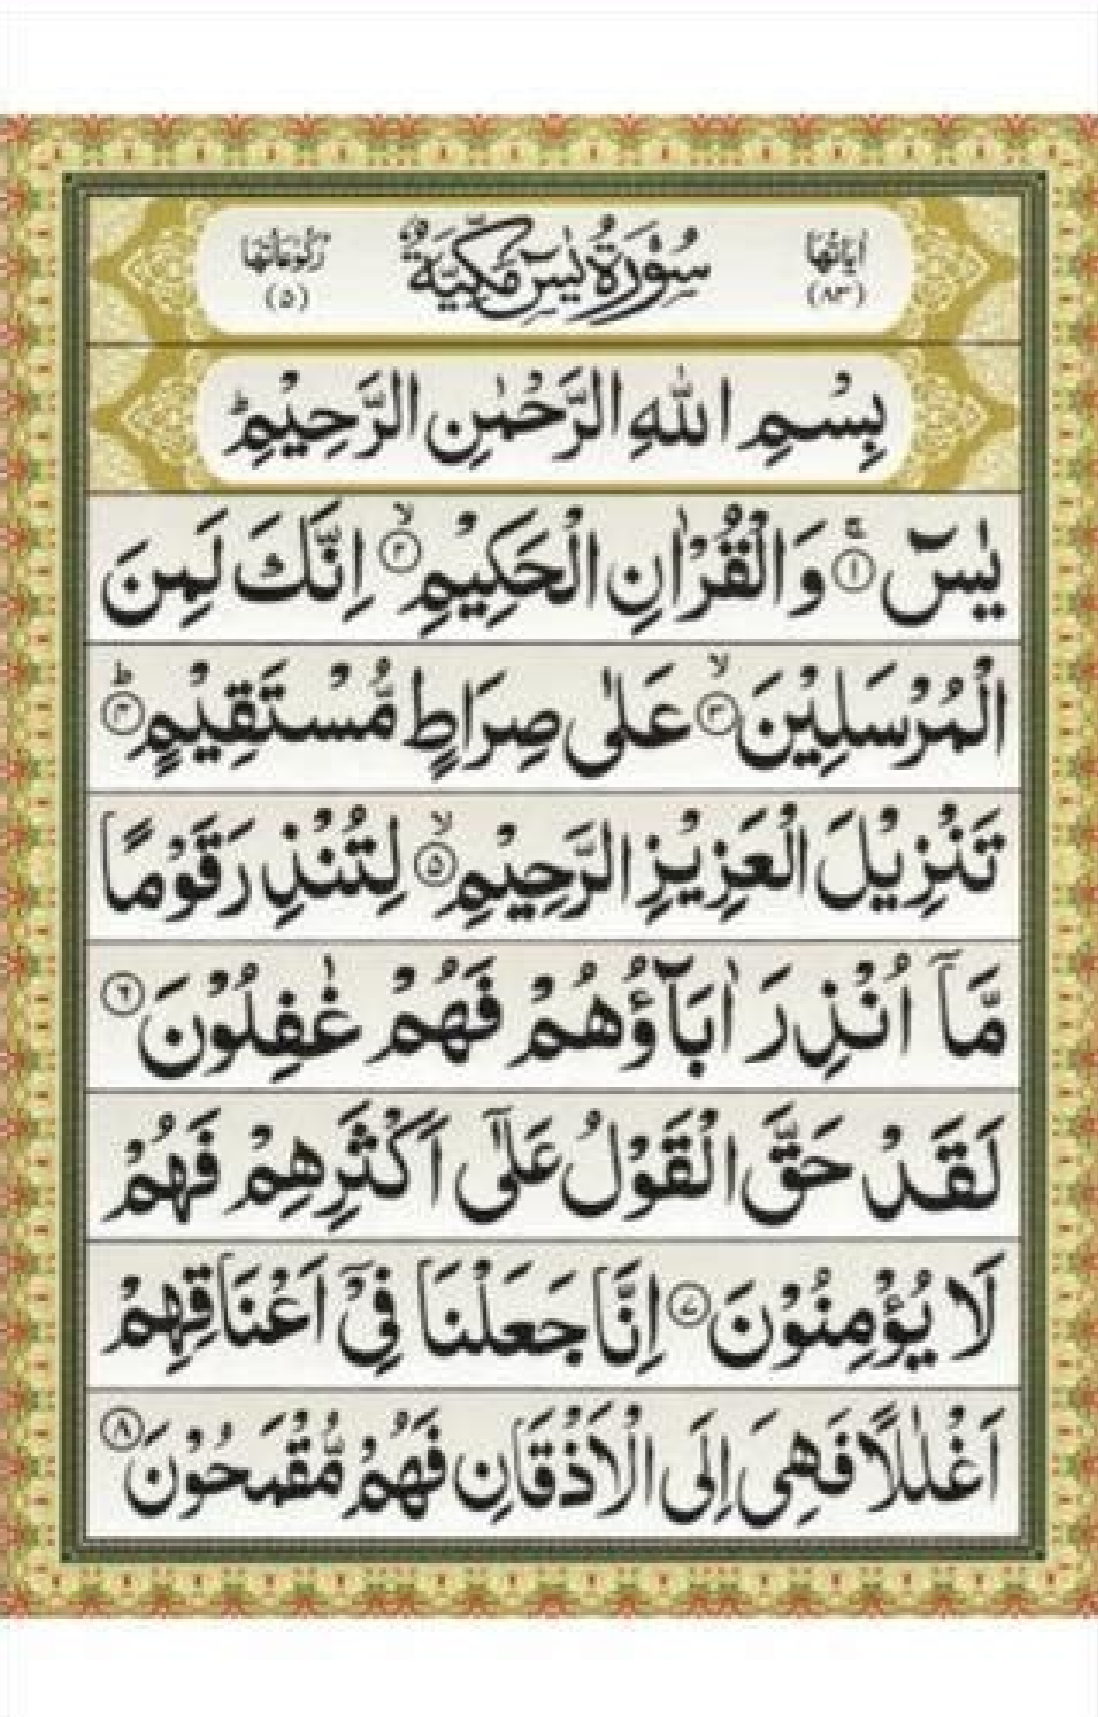 اٰیَاتُهَا
(٨٣)
سُوْرَةُ يٰسٓ مَكِّيَّةٌ
رُكُوْعَاتُهَا
(٥)
بِسْمِ اللّٰهِ الرَّحْمٰنِ الرَّحِيْمِؕ
يٰسٓ ۚ ١ وَالْقُرْاٰنِ الْحَكِيْمِ ۙ ٢ اِنَّكَ لَمِنَ
الْمُرْسَلِيْنَ ۙ ٣ عَلٰى صِرَاطٍ مُّسْتَقِيْمٍ ؕ ٤
تَنْزِيْلَ الْعَزِيْزِ الرَّحِيْمِ ۙ ٥ لِتُنْذِرَ قَوْمًا
مَّاۤ اُنْذِرَ اٰبَآؤُهُمْ فَهُمْ غٰفِلُوْنَ ٦
لَقَدْ حَقَّ الْقَوْلُ عَلٰۤى اَكْثَرِهِمْ فَهُمْ
لَا يُؤْمِنُوْنَ ٧ اِنَّا جَعَلْنَا فِيْۤ اَعْنَاقِهِمْ
اَغْلٰلًا فَهِىَ اِلَى الْاَذْقَانِ فَهُمْ مُّقْمَحُوْنَ ٨